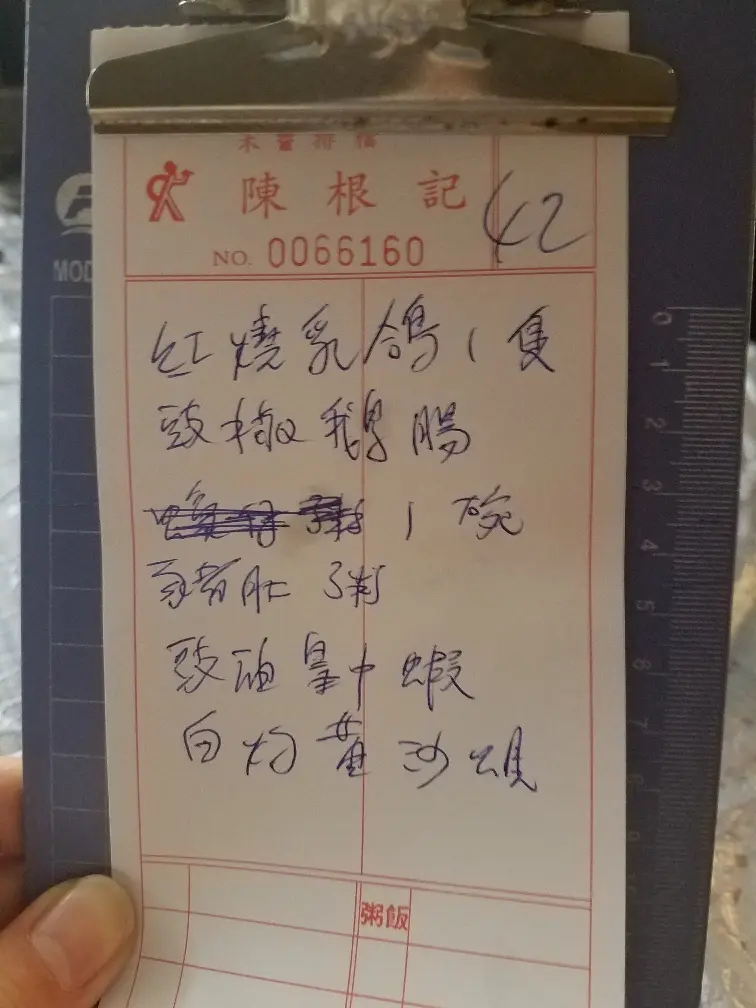 陳根記
42
NO. 0066160
紅燒乳鴿1隻
豉椒鵝腸
1碗
豬肚粥
豉油皇中蝦
白灼黃沙蜆
粥飯
MOD
0
1
2
3
4
5
6
7